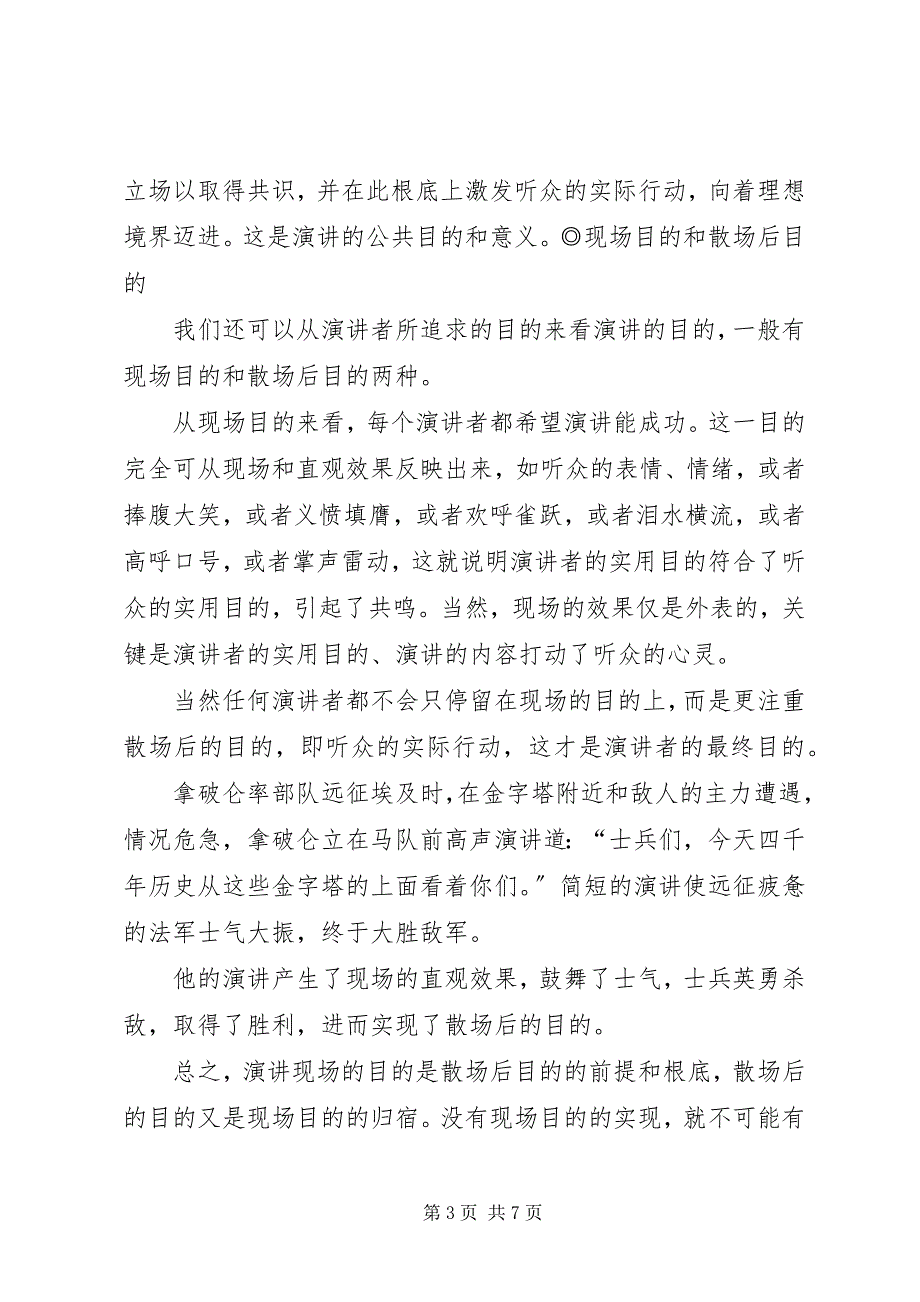 立场以取得共识，并在此根底上激发听众的实际行动，向着理想
境界迈进。这是演讲的公共目的和意义。◎现场目的和散场后目
的
我们还可以从演讲者所追求的目的来看演讲的目的，一般有
现场目的和散场后目的两种。
从现场目的来看，每个演讲者都希望演讲能成功。这一目的
完全可从现场和直观效果反映出来，如听众的表情、情绪，或者
捧腹大笑，或者义愤填膺，或者欢呼雀跃，或者泪水横流，或者
高呼口号，或者掌声雷动，这就说明演讲者的实用目的符合了听
众的实用目的，引起了共鸣。当然，现场的效果仅是外表的，关
键是演讲者的实用目的、演讲的内容打动了听众的心灵。
当然任何演讲者都不会只停留在现场的目的上，而是更注重
散场后的目的，即听众的实际行动，这才是演讲者的最终目的。
拿破仑率部队远征埃及时，在金字塔附近和敌人的主力遭遇，
情况危急，拿破仑立在马队前高声演讲道：“士兵们，今天四千
年历史从这些金字塔的上面看着你们。〞简短的演讲使远征疲惫
的法军士气大振，终于大胜敌军。
他的演讲产生了现场的直观效果，鼓舞了士气，士兵英勇杀
敌，取得了胜利，进而实现了散场后的目的。
总之，演讲现场的目的是散场后目的的前提和根底，散场后
的目的又是现场目的的归宿。没有现场目的的实现，就不可能有
第 3 页 共 7 页